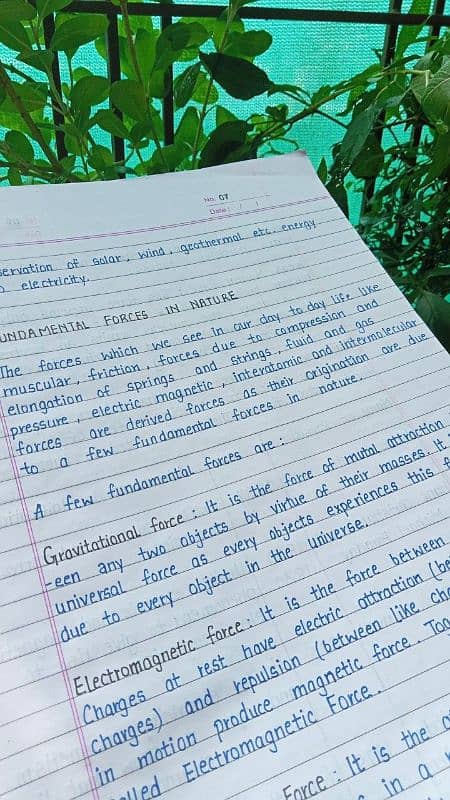 No. 07
Date: / /
servation of solar, wind, geothermal etc. energy
o electricity.
UNDAMENTAL FORCES IN NATURE
The forces which we see in our day to day life like
muscular, friction, forces due to compression and
elongation of springs and strings, fluid and gas
pressure, electric magnetic, interatomic and intermolecular
forces are derived forces as their origination are due
to a few fundamental forces in nature.
A few fundamental forces are:
Gravitational force : It is the force of mutal attraction
-een any two objects by virtue of their masses. It
universal force as every objects experiences this f
due to every object in the universe.
Electromagnetic force : It is the force between
Charges at rest have electric attraction (be
charges) and repulsion (between like cha
in motion produce magnetic force. Tog
lled Electromagnetic Force.
Force : It is the
in a